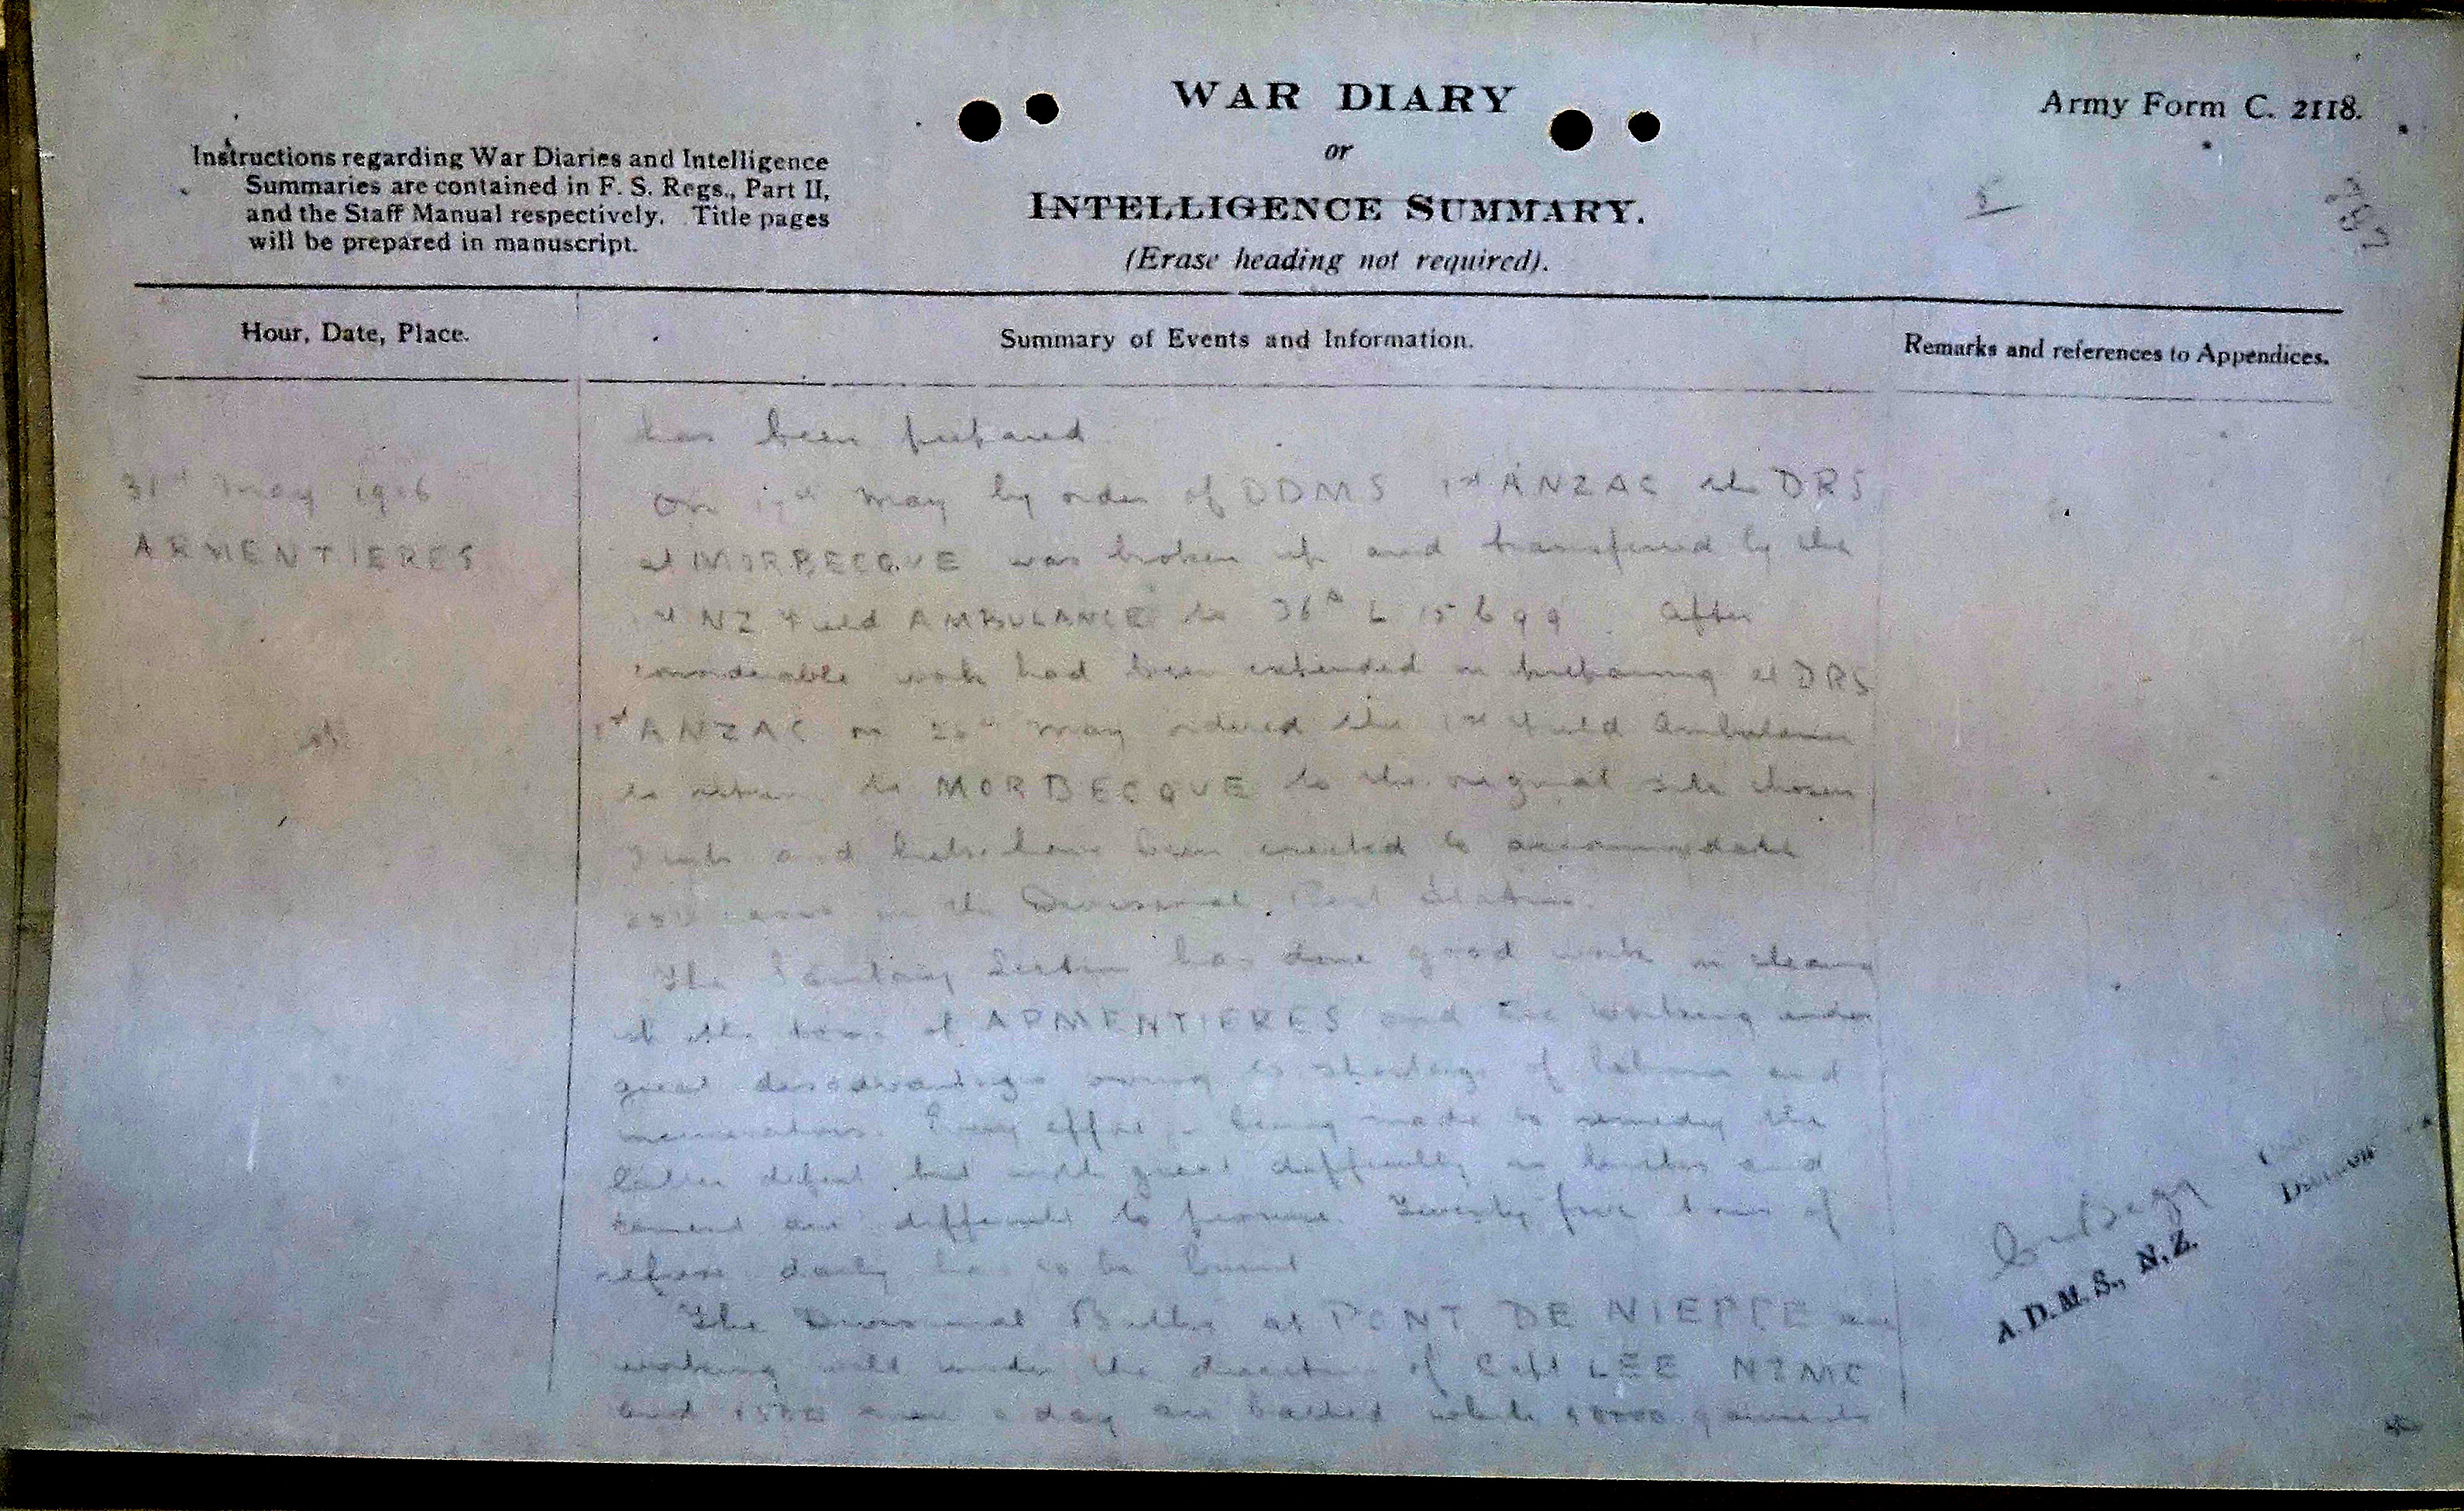 WAR DIARY
or
INTELLIGENCE SUMMARY.
(Erase heading not required).
Army Form C. 2118.
Instructions regarding War Diaries and Intelligence
Summaries are contained in F. S. Regs., Part II,
and the Staff Manual respectively. Title pages
will be prepared in manuscript.
5
Hour, Date, Place.
Summary of Events and Information.
Remarks and references to Appendices.
31st May 1916
ARMENTIERES
has been prepared
On May by order of DDMS 1st ANZAC the DRS
at MORBECQUE was broken up and transferred by the
1st NZ Field AMBULANCE to 36A L 15 b 9 9. After
considerable work had been expended in preparing at DRS
1st ANZAC on May ordered the 1st Field Ambulance
to return to MORBECQUE to the original site chosen
Tents and huts have been erected to accommodate
cases in the Divisional Rest Station.
The Sanitary Section has done good work in cleaning
up the town of ARMENTIERES and working under
great disadvantage owing to shortage of labour and
incinerators. Every effort is being made to remedy the
latter defect but with great difficulty as bricks and
cement are difficult to procure. Twenty five tons of
refuse daily has to be burnt
The Divisional Baths at PONT DE NIEPPE are
working well under the direction of Capt LEE NZMC
and 1500 men a day are bathed while garments
Begg
A.D.M.S., N.Z.
Division